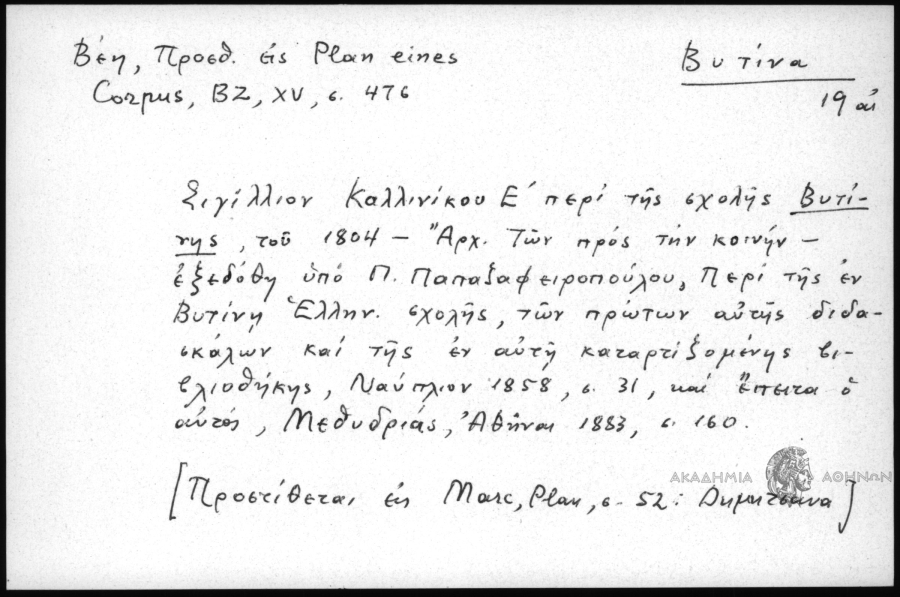 Βέη, Προσθ. εἰς Plan eines
Corpus, BZ, XV, σ. 476
Βυτίνα
19 αἰ
Σιγίλλιον Καλλινίκου Ε' περί τῆς σχολῆς Βυτί-
νης, τοῦ 1804 - Ἀρχ. Τῶν πρός τήν κοινήν -
ἐξεδόθη ὑπό Π. Παπαζαφειροπούλου, Περί τῆς ἐν
Βυτίνῃ Ἑλλην. σχολῆς, τῶν πρώτων αὐτῆς διδα-
σκάλων καί τῆς ἐν αὐτῇ καταρτιζομένης βι-
βλιοθήκης, Ναύπλιον 1858, σ. 31, καί ἔπειτα ὁ
αὐτός, Μεθυδριάς, Ἀθῆναι 1883, σ. 160.
[Προστίθεται εἰς Marc, Plan, σ. 52: Δημητσάνα]
ΑΚΑΔΗΜΙΑ ΑΘΗΝΩΝ